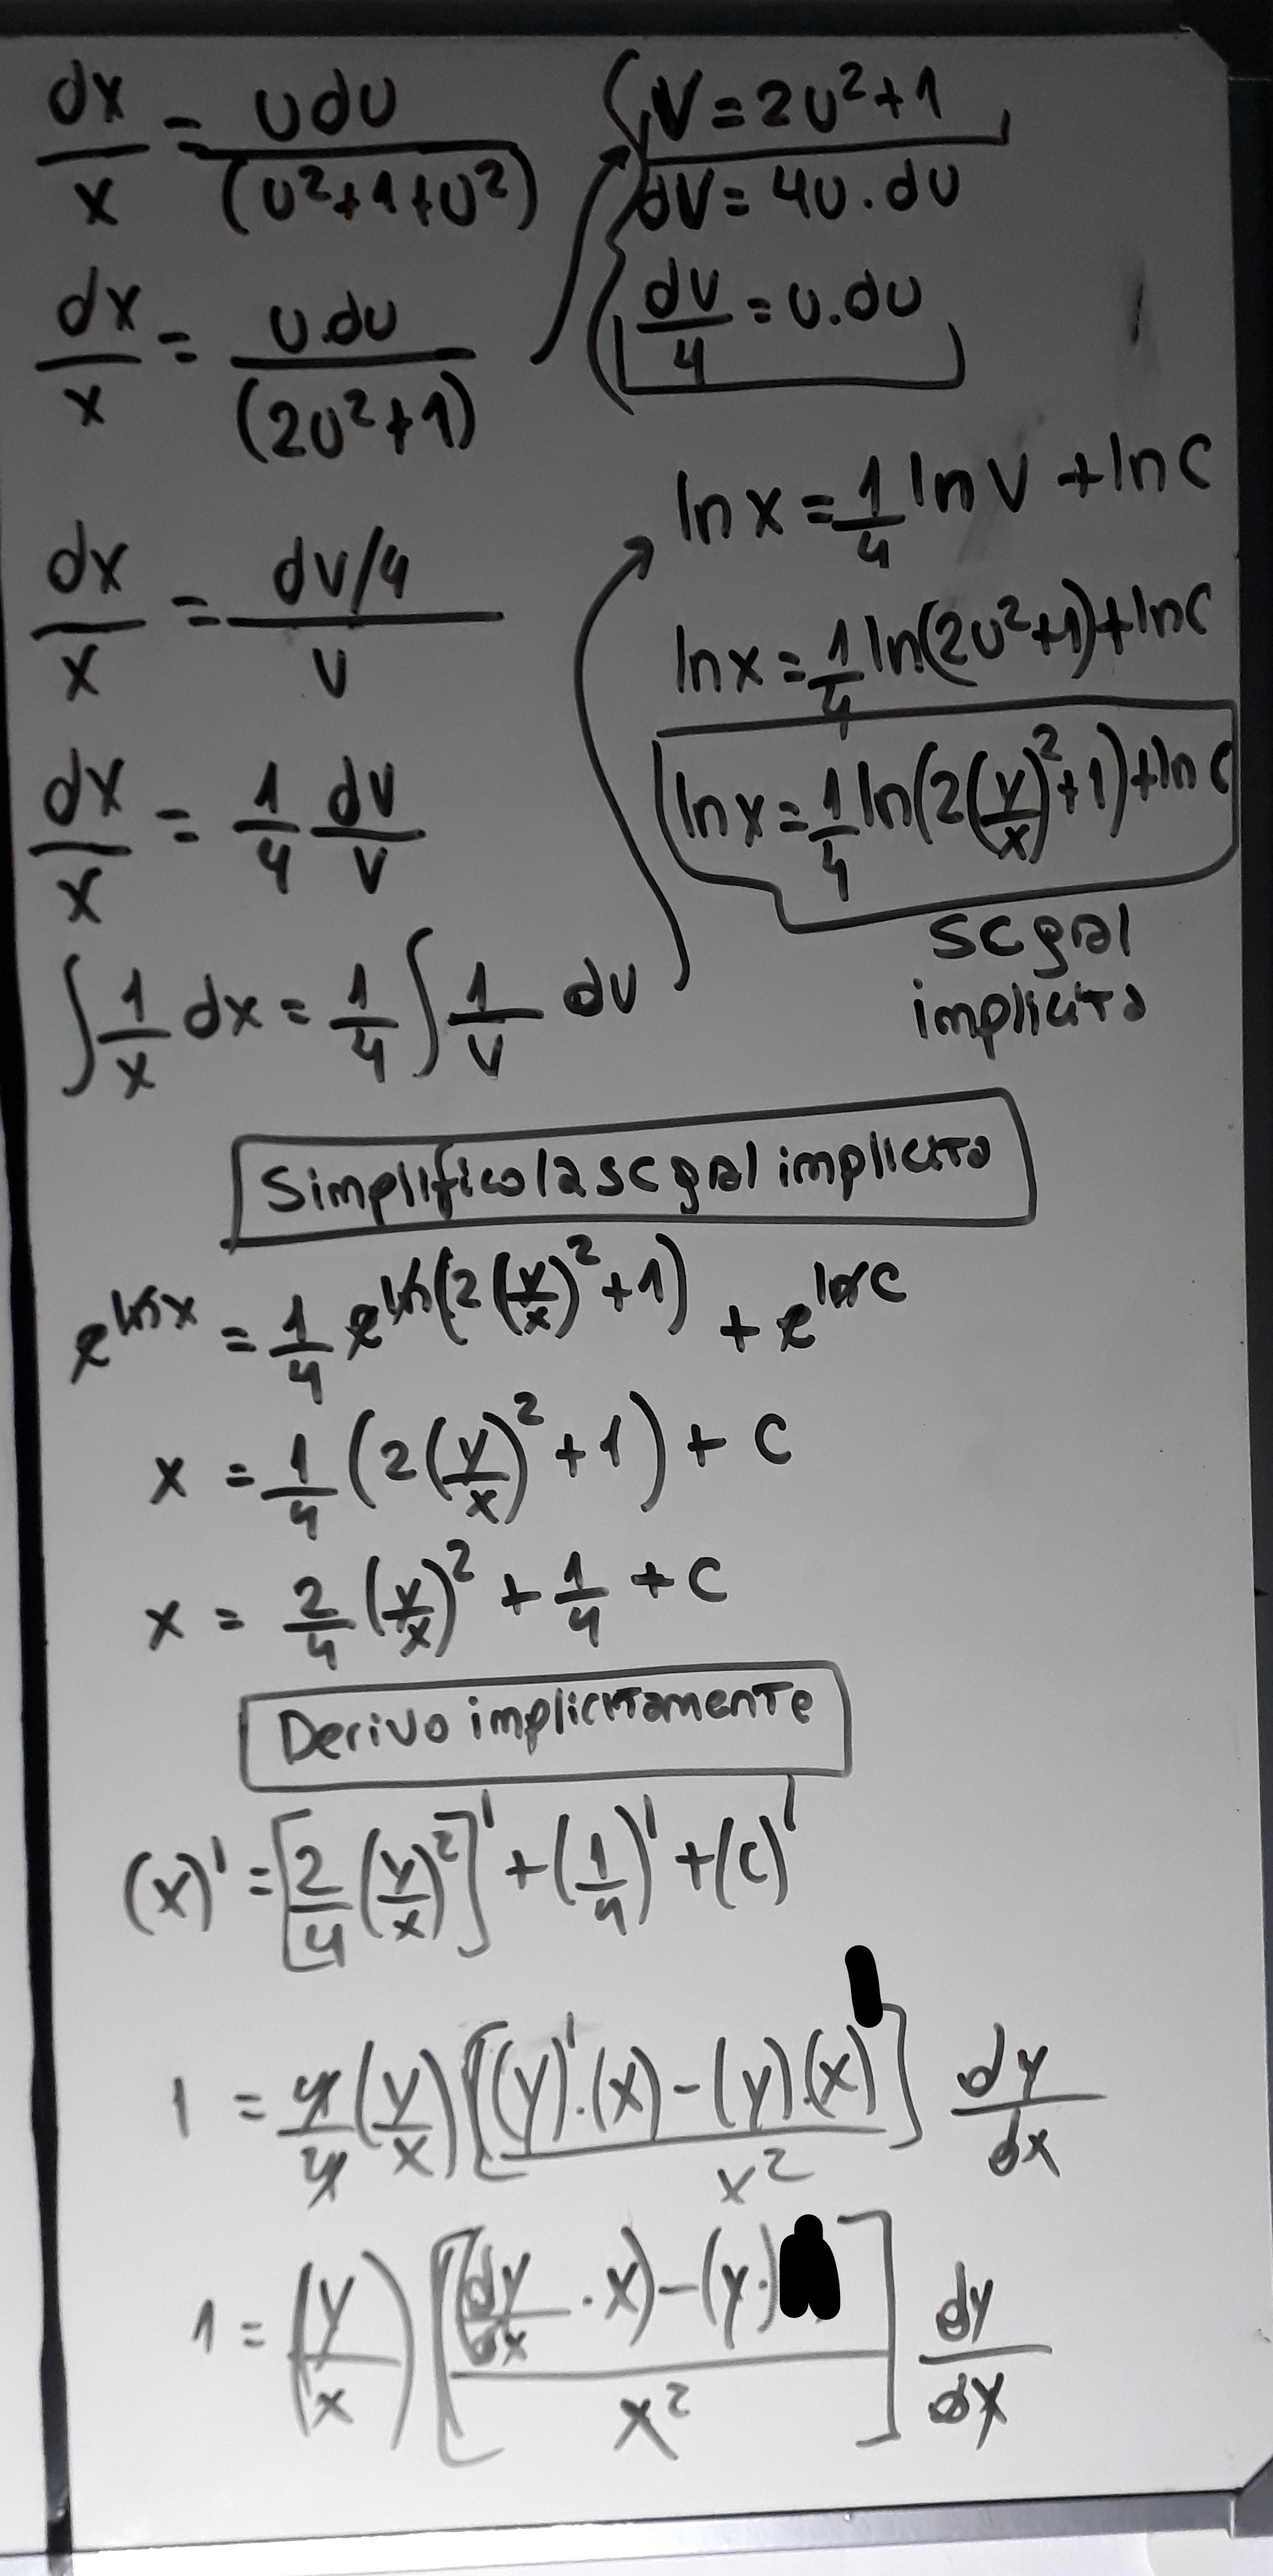 dx/x = udu/(u²+1+u²)
dx/x = u.du/(2u²+1)
V = 2u²+1
dV = 4u.du
dv/4 = u.du
dx/x = (dv/4)/v
dx/x = 1/4 dv/v
∫ 1/x dx = 1/4 ∫ 1/v dv
ln x = 1/4 ln v + ln C
ln x = 1/4 ln(2u²+1) + ln C
ln x = 1/4 ln(2(y/x)²+1) + ln C
SC gral
implicita
Simplifico la SC gral implicita
e^(ln x) = 1/4 e^(ln(2(y/x)²+1)) + e^(ln C)
x = 1/4 (2(y/x)²+1) + C
x = 2/4 (y/x)² + 1/4 + C
Derivo implicitamente
(x)' = [2/4 (y/x)²]' + (1/4)' + (C)'
1 = 4/4 (y/x) [((y)'.(x) - (y).(x))/x²] dy/dx
1 = (y/x) [((dy/dx . x) - (y.))/x²] dy/dx